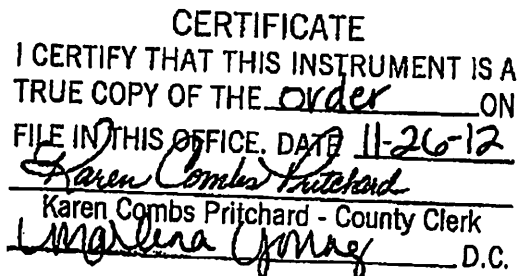 CERTIFICATE
I CERTIFY THAT THIS INSTRUMENT IS A
TRUE COPY OF THE order ON
FILE IN THIS OFFICE. DATE 11-26-12
Karen Combs Pritchard
Karen Combs Pritchard - County Clerk
Young D.C.